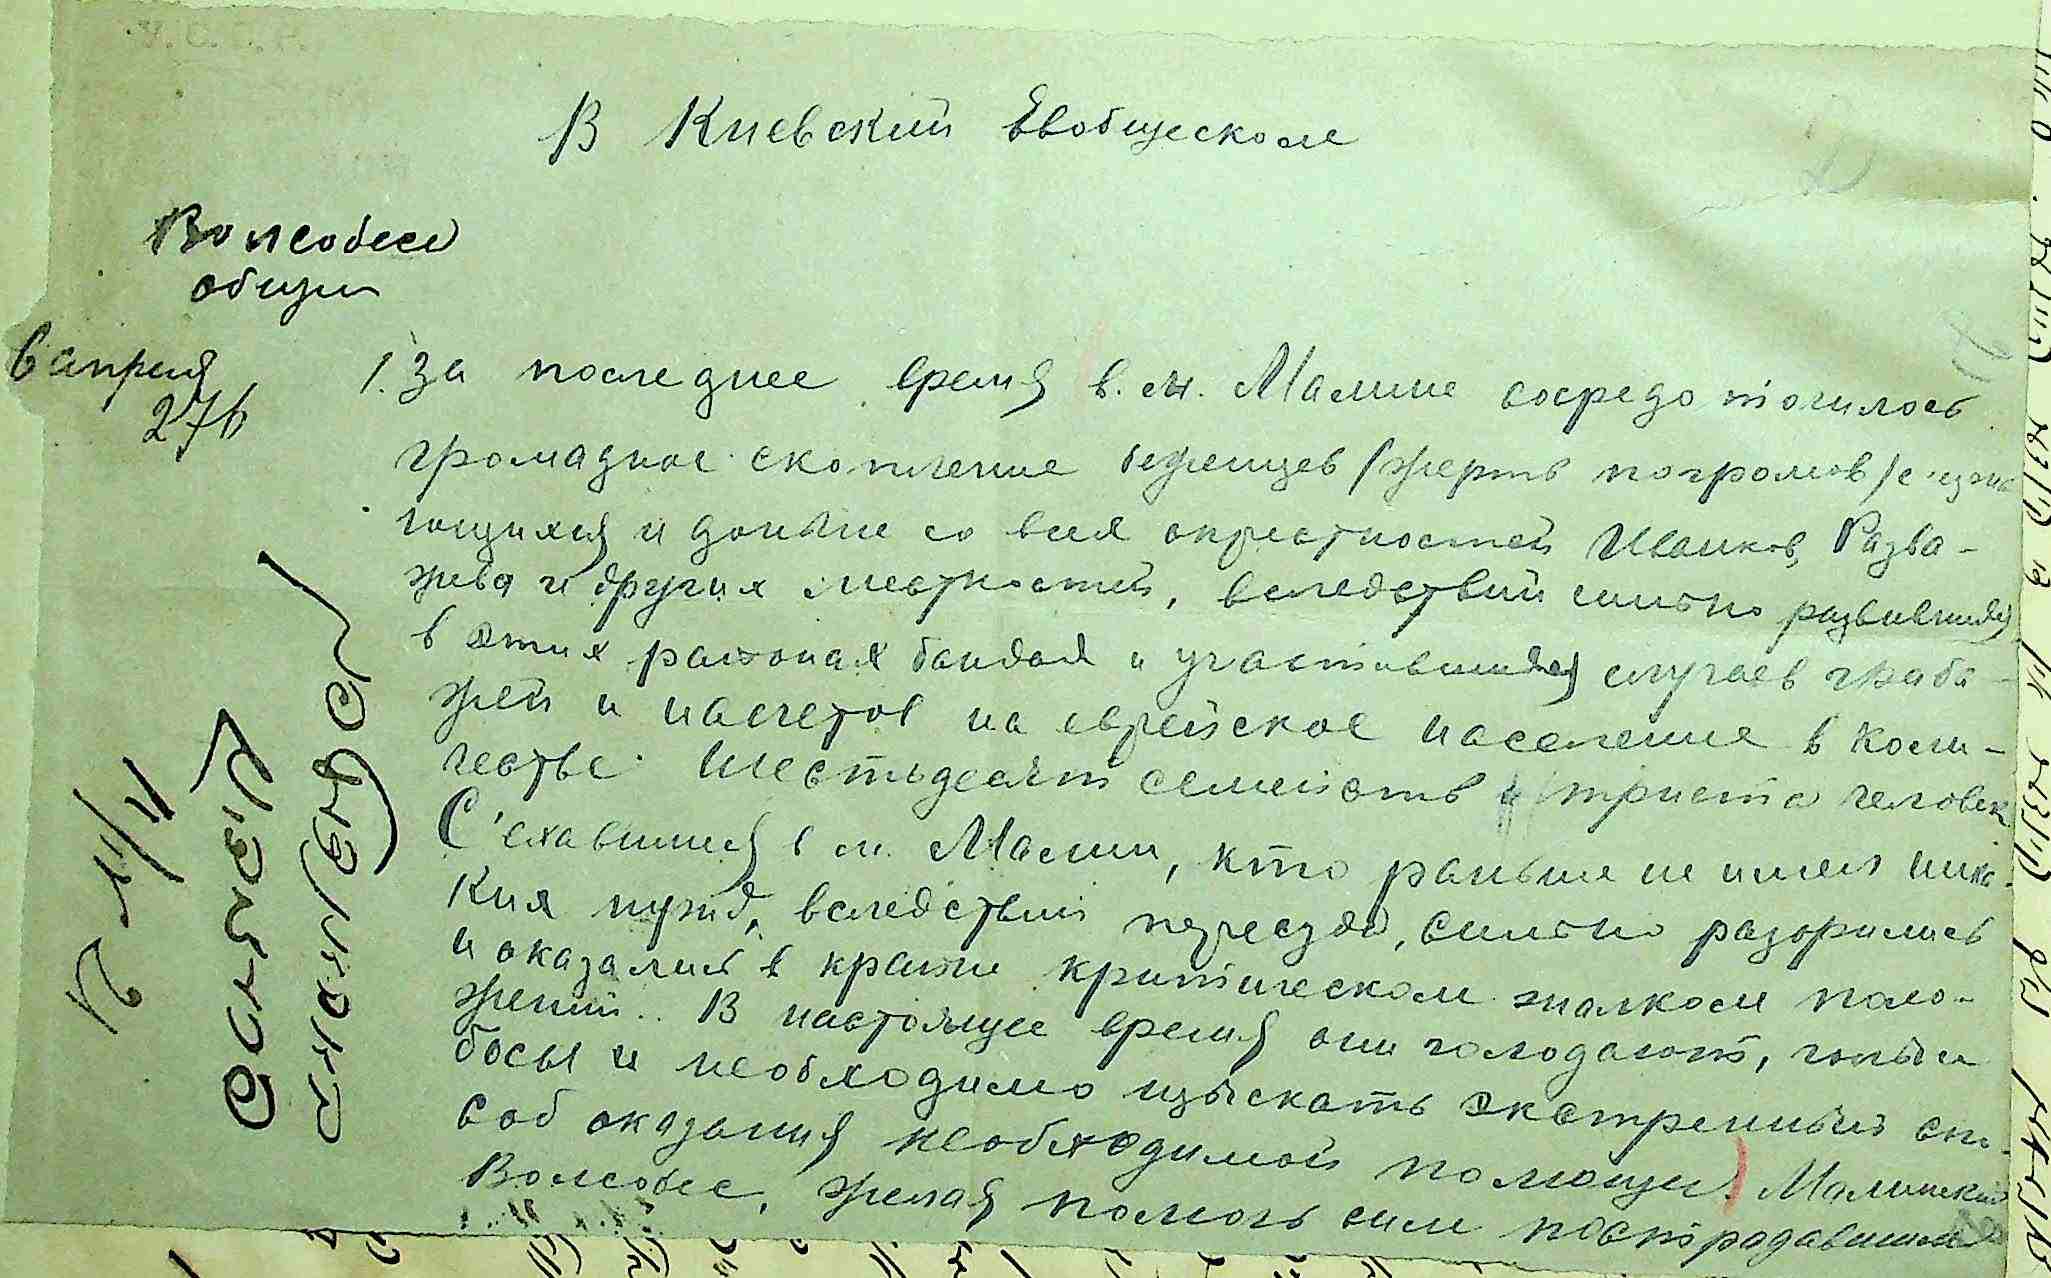 В Киевский Евобщеском
Волсобес
общий
6 апреля
276
1. За последнее время в. м. Малине сосредоточилось
громадное скопление беженцев (жертв погромов)
ющихся и доныне со всех окрестностей Иванков, Разва-
жева и других местностей, вследствий сильно развившихся
в этих районах бандах и участившихся случаев грабе-
жей и налетов на еврейское население в коли-
честве шестьдесят семейств и триста человек
С'ехавшиеся в м. Малин, кто раньше не имел ника-
ких нужд, вследствий переезда, сильно разорились
и оказались в крайне критическом жалком поло-
жении. В настоящее время они голодают, голы и
босы и необходимо изыскать экстренный спо-
соб оказания необходимой помощи. Малинский
Волсобес, желая помочь сим пострадавшим